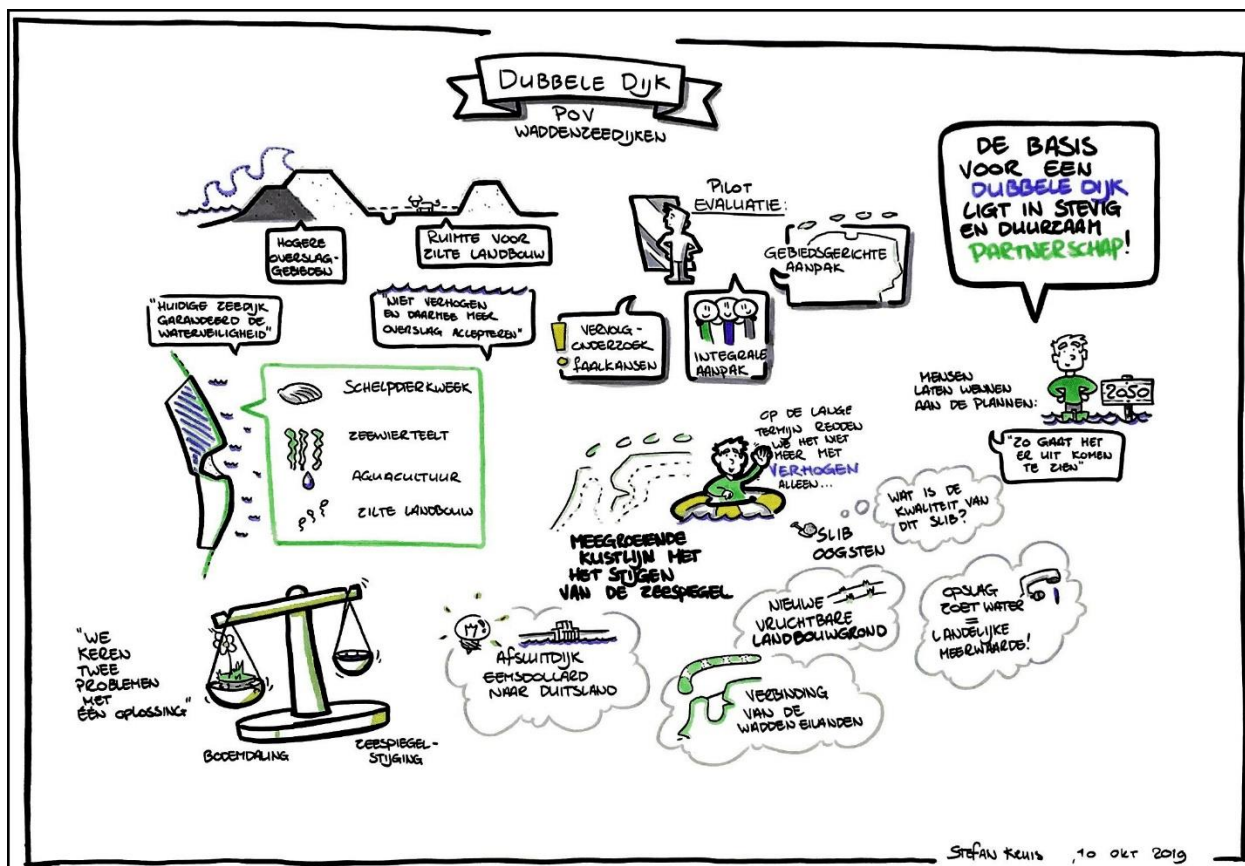 DUBBELE DIJK
POV
WADDENZEEDIJKEN
HOGERE
OVERSLAG-
GEBIEDEN
RUIMTE VOOR
ZILTE LANDBOUW
"HUIDIGE ZEEDIJK
GARANDEERD DE
WATERVEILIGHEID"
"NIET VERHOGEN
EN DAARMEE MEER
OVERSLAG ACCEPTEREN"
SCHELPDIERKWEEK
ZEEWIERTEELT
AQUACULTUUR
ZILTE LANDBOUW
PILOT
EVALUATIE:
GEBIEDSGERICHTE
AANPAK
VERVOLG-
ONDERZOEK
FAALKANSEN
INTEGRALE
AANPAK
DE BASIS
VOOR EEN
DUBBELE DIJK
LIGT IN STEVIG
EN DUURZAAM
PARTNERSCHAP!
MENSEN
LATEN WENNEN
AAN DE PLANNEN:
2050
"ZO GAAT HET
ER UIT KOMEN
TE ZIEN"
OP DE LANGE
TERMIJN REDDEN
WE HET NIET
MEER MET
VERHOGEN
ALLEEN...
MEEGROEIENDE
KUSTLIJN MET
HET STIJGEN
VAN DE ZEESPIEGEL
SLIB
OOGSTEN
WAT IS DE
KWALITEIT VAN
DIT SLIB?
NIEUWE
VRUCHTBARE
LANDBOUWGROND
OPSLAG
ZOET WATER
=
LANDELIJKE
MEERWAARDE!
"WE
KEREN
TWEE
PROBLEMEN
MET
ÉÉN OPLOSSING"
BODEMDALING
ZEESPIEGEL-
STIJGING
AFSLUITDIJK
EEMSDOLLARD
NAAR DUITSLAND
VERBINDING
VAN DE
WADDENEILANDEN
STEFAN KRUIS 10 OKT 2019